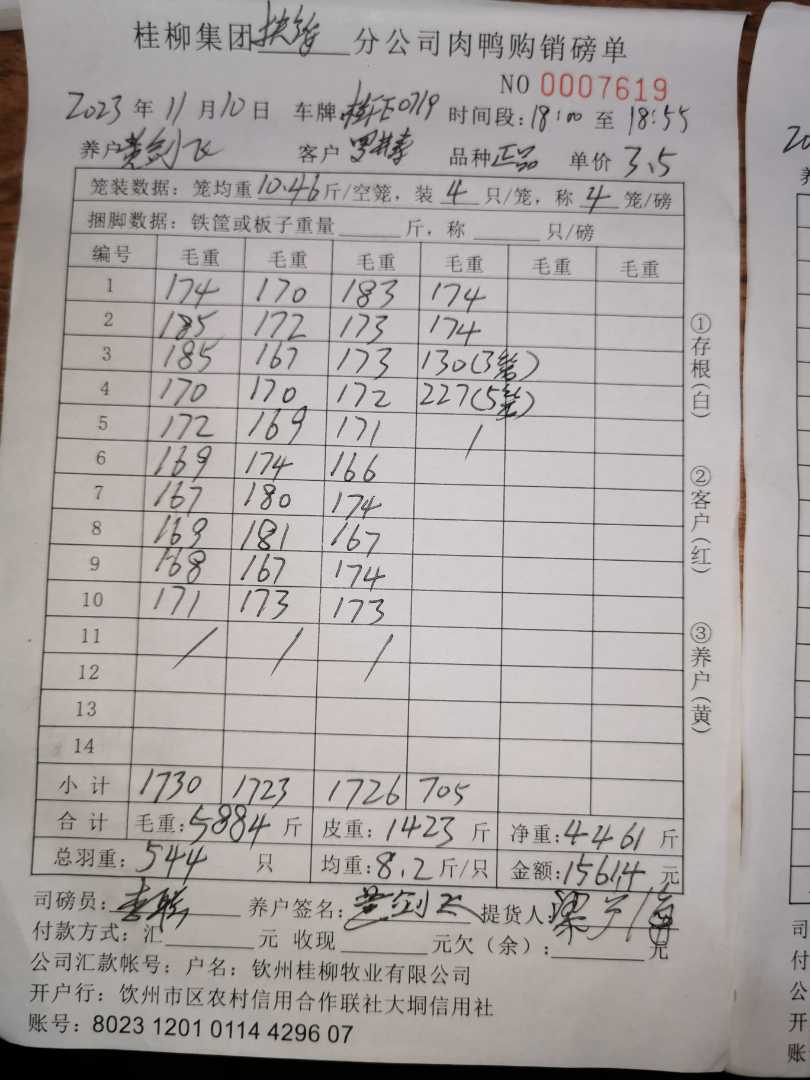 桂柳集团扶绥分公司肉鸭购销磅单
NO 0007619
2023年11月10日 车牌 0719 时间段:18:00至18:55
养户黄剑飞 客户 罗 品种正品 单价3.5
笼装数据:笼均重10.46斤/空笼,装4只/笼,称4笼/磅
捆脚数据:铁筐或板子重量 斤,称 只/磅
编号 毛重 毛重 毛重 毛重 毛重 毛重
1 174 170 183 174
2 185 172 173 174
3 185 167 173 130(3笼)
4 170 170 172 227(5笼)
5 172 169 171 /
6 169 174 166
7 167 180 174
8 169 181 167
9 168 167 174
10 171 173 173
11 / / /
12
13
14
小计 1730 1723 1726 705
合计 毛重:5884斤 皮重:1423斤 净重:4461斤
总羽重:544只 均重:8.2斤/只 金额:15614元
司磅员:李 养户签名:黄剑飞 提货人:梁
付款方式:汇 元 收现 元欠(余): 元
公司汇款帐号:户名:钦州桂柳牧业有限公司
开户行:饮州市区农村信用合作联社大垌信用社
账号:8023 1201 0114 4296 07
①存根(白)
②客户(红)
③养户(黄)
20
养
司
付
公
开
账